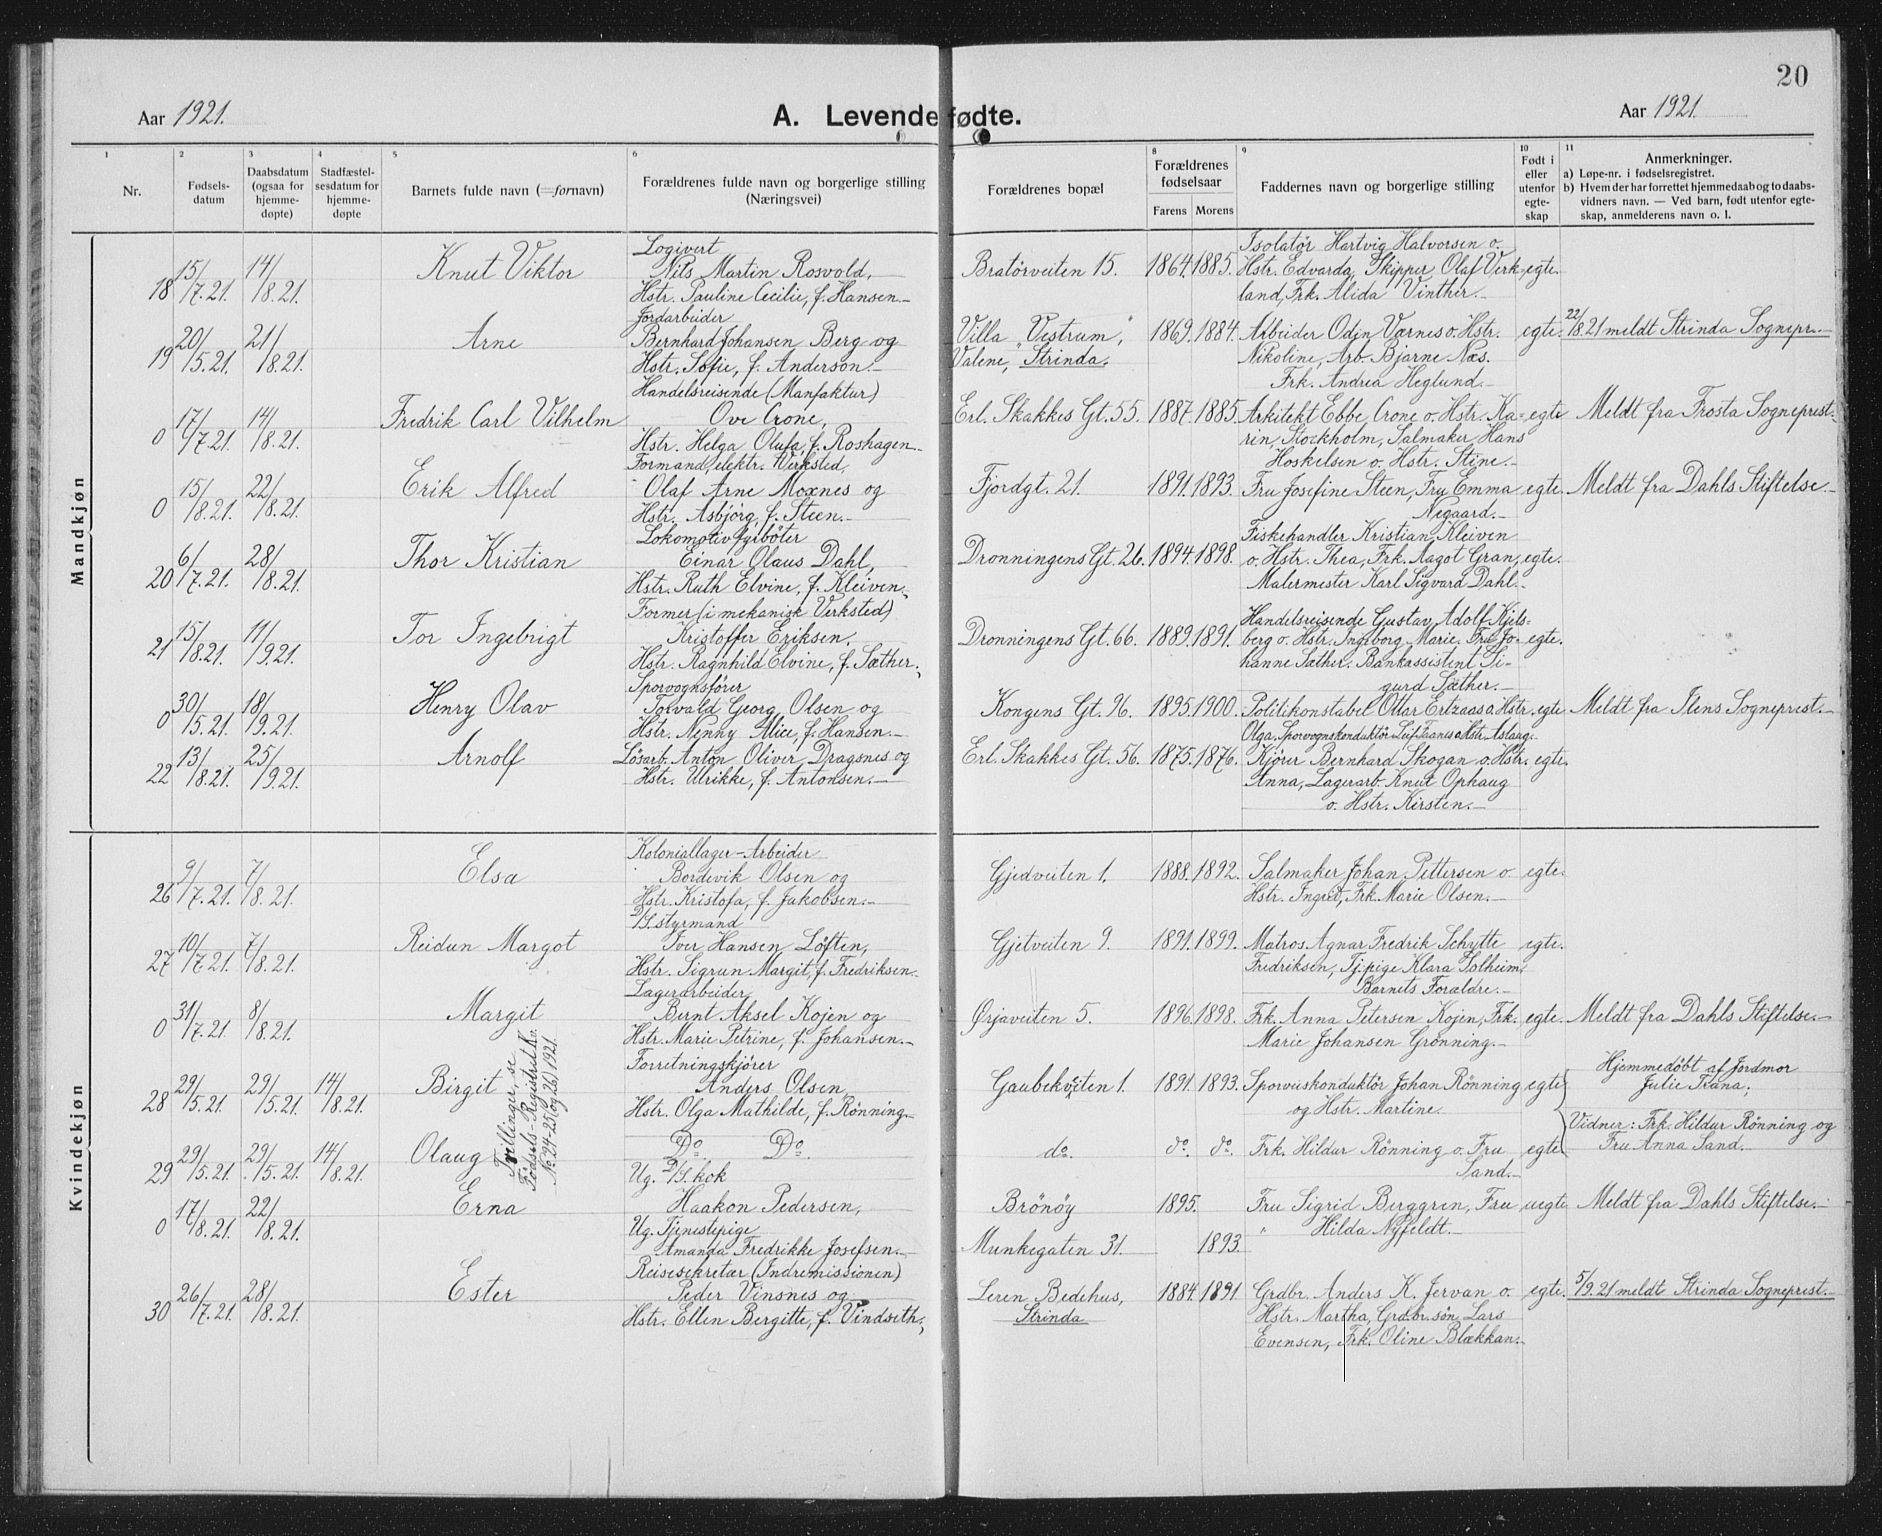 20
Aar 1921.
A. Levendefødte.
Aar 1921.
1 2 3 4 5 6 7 8 9 10 11
Nr.
Fødsels-
datum
Daabsdatum
(ogsaa for
hjemme-
døpte)
Stadfæstel-
sesdatum for
hjemme-
døpte
Barnets fulde navn (=fornavn)
Forældrenes fulde navn og borgerlige stilling
(Næringsvei)
Forældrenes bopæl
Forældrenes
fødselsaar
Farens Morens
Faddernes navn og borgerlige stilling
Født i
eller
utenfor
egte-
skap
Anmerkninger.
a) Løpe-nr. i fødselsregistret.
b) Hvem der har forrettet hjemmedaab og to daabs-
vidners navn. — Ved barn, født utenfor egte-
skap, anmelderens navn o. l.
Mandkjøn
18 15/7.21. 14/8.21. Knut Viktor
Logivert
Nils Martin Rosvold,
Hstr. Pauline Cecilie, f. Hansen.-
Bratörveiten 15. 1864. 1885.
Isolatør Hartvig Halvorsen o.
Hstr. Edvarda, Skipper Olaf Verk-
land, Frk. Alida Vinther.-
egte.
19 20/5.21. 21/8.21. Arne
Jordarbeider
Bernhard Johansen Berg og
Hstr. Sofie, f. Anderson.-
Villa "Vestrum",
Valene, Strinda.
1869. 1884.
Arbeider Odin Værnes o. Hstr.
Nikoline, Arb. Bjarne Næs.
Frk. Andrea Heglund.-
egte. 22/8.21 meldt Strinda Sognepr.-
0 17/7.21. 14/8.21. Fredrik Carl Vilhelm
Handelsreisende (Manfaktur)
Ove Crone,
Hstr. Helga Olufa, f. Roshagen.-
Erl. Skakkes Gt. 55. 1887. 1885.
Arkitekt Ebbe Crone o. Hstr. Ka-
rin, Stockholm, Salmaker Hans
Hoskelsen o. Hstr. Stine.-
egte Meldt fra Frosta Sogneprest.-
0 15/8.21. 22/8.21. Erik Alfred
Formand, elektr. Verksted,
Olaf Arne Moxnes og
Hstr. Asbjörg, f. Steen.-
Fjordgt. 21. 1891. 1893.
Fru Josefine Steen, Fru Emma
Negaard.-
egte. Meldt fra Dahls Stiftelse.-
20 6/7.21. 28/8.21. Thor Kristian
Lokomotivfyrböter
Einar Olaus Dahl,
Hstr. Ruth Elvine, f. Kleiven.-
Dronningens Gt. 26. 1894. 1898.
Fiskehandler Kristian Kleiven
o. Hstr. Thea, Frk. Aagot Gran,
Malermester Karl Sigvard Dahl.-
egte.
21 15/8.21. 11/9.21. Tor Ingebrigt
Former (i mekanisk Verksted)
Kristoffer Eriksen,
Hstr. Ragnhild Elvine, f. Sæther.-
Dronningens Gt. 66. 1889. 1891.
Handelsreisende Gustav Adolf Kjels-
berg o. Hstr. Ingeborg Marie, Fru Jo-
hanne Sæther. Bankassistent Si-
gurd Sæther.-
egte.
0 30/5.21. 18/9.21. Henry Olav
Sporvognsfører
Torvald Georg Olsen og
Hstr. Nenny Alice, f. Hansen.-
Kongens Gt. 96. 1895. 1900.
Politikonstabel Ottar Ertzaas o. Hstr.
Olga, Sporvognskonduktör Leif Tranes o Hstr. Aslaug.-
egte Meldt fra Ilens Sogneprest.-
22 13/8.21. 25/9.21. Arnolf
Lösarb. Anton Oliver Dragsnes og
Hstr. Ulrikke, f. Antonsen.-
Erl. Skakkes Gt. 56. 1875. 1876.
Kjörer Bernhard Skogan o. Hstr.
Anna, Lagerarb. Knut Ophaug
o. Hstr. Kirsten.-
egte.
Kvindekjøn
26 9/7.21. 7/8.21. Elsa
Koloniallager-Arbeider
Bordevik Olsen og
Hstr. Kristofa, f. Jakobsen.-
Gjedveiten 1. 1888. 1892.
Salmaker Johan Pettersen o
Hstr. Ingred, Frk. Marie Olsen.-
egte.
27 10/7.21. 7/8.21. Reidun Margot
D/S. styrmand
Iver Hansen Løften,
Hstr. Sigrun Margit, f. Fredriksen.
Gjetveiten 9. 1891. 1899.
Matros. Agnar Fredrik Schytte
Fredriksen, Tj.pige Klara Solheim,
Barnets Forældre.-
egte.
0 31/7.21. 8/8.21. Margit
Lagerarbeider
Bernt Aksel Kojen og
Hstr. Marie Petrine, f. Johansen.-
Ørjaveiten 5. 1896. 1898.
Frk. Anna Petersen Kojen, Frk.
Marie Johansen Grönning.-
egte. Meldt fra Dahls Stiftelse.-
28 29/5.21. 29/5.21. 14/8.21. Birgit
Tvillinger, se
Födsels-Registret Kv.
No. 24-25 (og 26) 1921.
Forretningskjører
Anders Olsen
Hstr. Olga Mathilde, f. Rönning.-
Gaubekveiten 1. 1891. 1893.
Sporveiskonduktör Johan Rönning
og Hstr. Martine.
egte
Hjemmedöbt af Jordmor
Julie Tiana;
29 29/5.21. 29/5.21. 14/8.21. Olaug
Do Do.
do. do. do.
Frk. Hildur Rönning o. Fru
Sand.-
egte
Vidner: Frk. Hildur Rönning og
Fru Anna Sand.-
0 17/8.21. 22/8.21. Erna
Ug. D/S. kok
Haakon Pedersen,
Ug. Tjenestepige
Amanda Fredrikke Josefsen.-
Brönöy 1895.
Munkegaten 31. 1893.
Fru Sigrid Berggren, Fru
" Hilda Nyfeldt.-
uegte Meldt fra Dahls Stiftelse.-
30 26/7.21. 28/8.21. Ester
Reisesekretær (Indremissionen)
Peder Vinsnes og
Hstr. Ellen Bergitte, f. Vindseth.-
Leren Bedehus,
Strinda
1884 1891.
Grdbr. Anders K. Jervan o.
Hstr. Martha, Grdbr.sön Lars
Evensen, Frk. Oline Blækkan.-
egte. 5/9.21 meldt Strinda Sogneprest.-